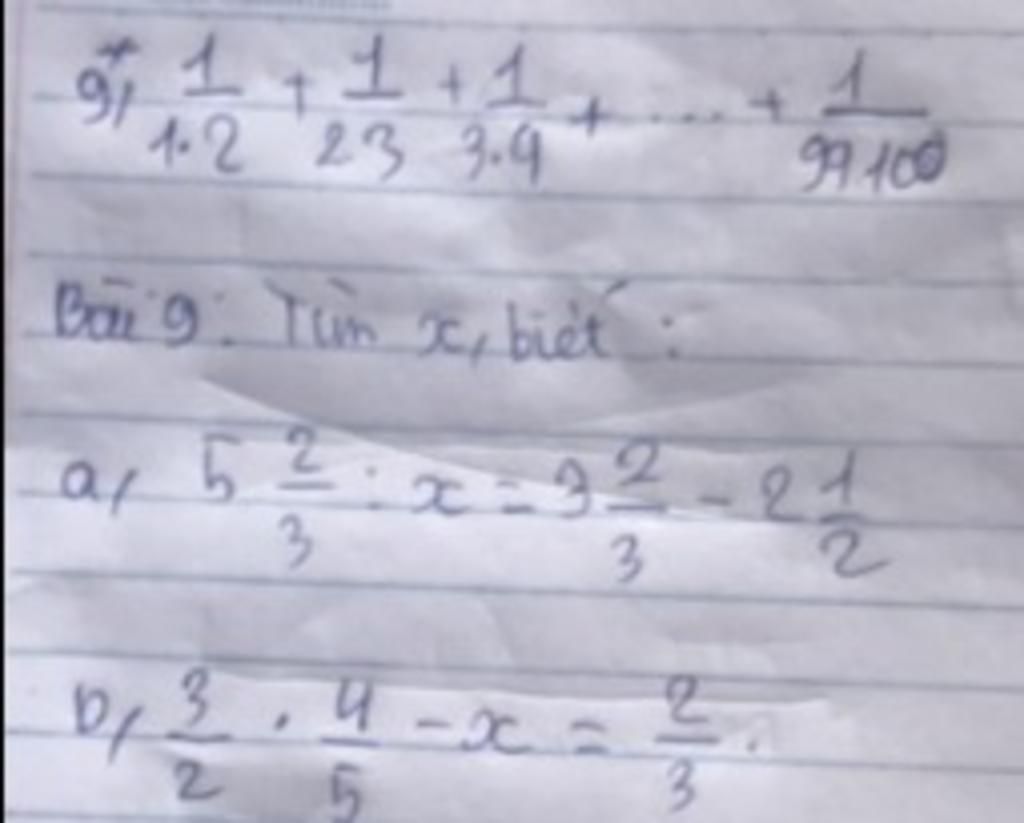 g*, 1/1.2 + 1/23 + 1/3.4 + .... + 1/99 100
Bài 9: Tìm x, biết :
a, 5 2/3 : x = 3 2/3 - 2 1/2
b, 3/2 . 4/5 - x = 2/3.